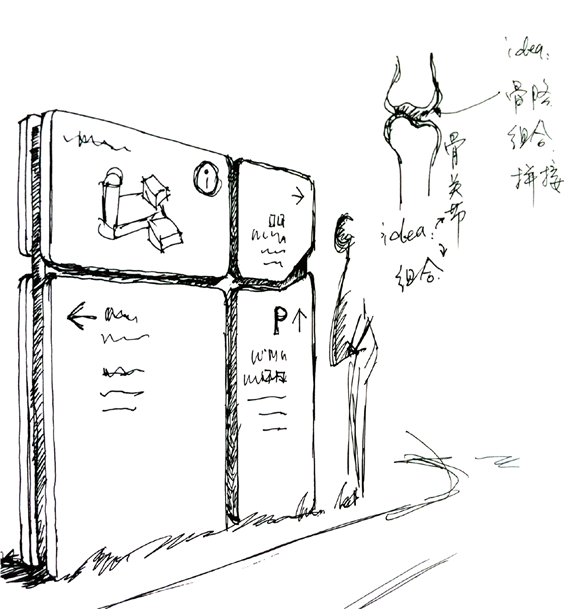 idea:
骨骼
组合
拼接
骨关节
idea:
组合
i
P